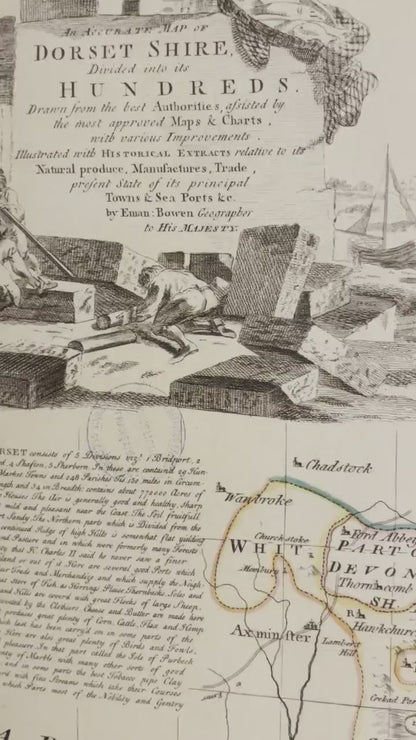 An Accurate Map of
DORSET SHIRE,
Divided into its
HUNDREDS.
Drawn from the best Authorities, assisted by
the most approved Maps & Charts,
with various Improvements.
Illustrated with HISTORICAL EXTRACTS relative to its
Natural produce, Manufactures, Trade,
present State of its principal
Towns & Sea Ports &c.
by Eman: Bowen Geographer
to HIS MAJESTY.
RSET consists of 5 Divisions viz! 1 Bridport, 2
4 Shaston, 5 Sherborn. In these are contain'd 29 Hun-
Market Towns and 248 Parishes. Tis 150 miles in Circum-
ngth and 34 in Breadth: contains about 772000 Acres of
Houses The Air is generally good and healthy, Sharp
mild and pleasant near the Coast The Soil fruitfull
Sandy. The Northern part which is Divided from the
continued Ridge of high Hills is somewhat flat yielding
and Pasture and in which were formerly many Forests
that K. Charles II said he never saw a finer
or out of it Here are several good Ports which
Trade and Merchandize and which supply the Neigh
Store of Fish as Herrings Plaise Thornbacks Soles and
and Hills are cover'd with great Flocks of large Sheep.
by the Clothiers Cheese and Butter are made here
produces great plenty of Corn, Cattle, Flax and Hemp
last has been carry'd on in some parts of the
Here are also great plenty of Birds and Fowls.
pleasure In that part called the Isle of Purbeck
of Marble with many other sorts of good
and in some parts the best Tobacco pipe Clay
with fine Streams which take their Courses
which Parts most of the Nobility and Gentry
Chadstock
Wanbroke
Church stoke
WHIT.
Ford Abbey
PART O
DEVON
Thorncomb
SH
Hawkchur
Axminster
Lambert
Hill